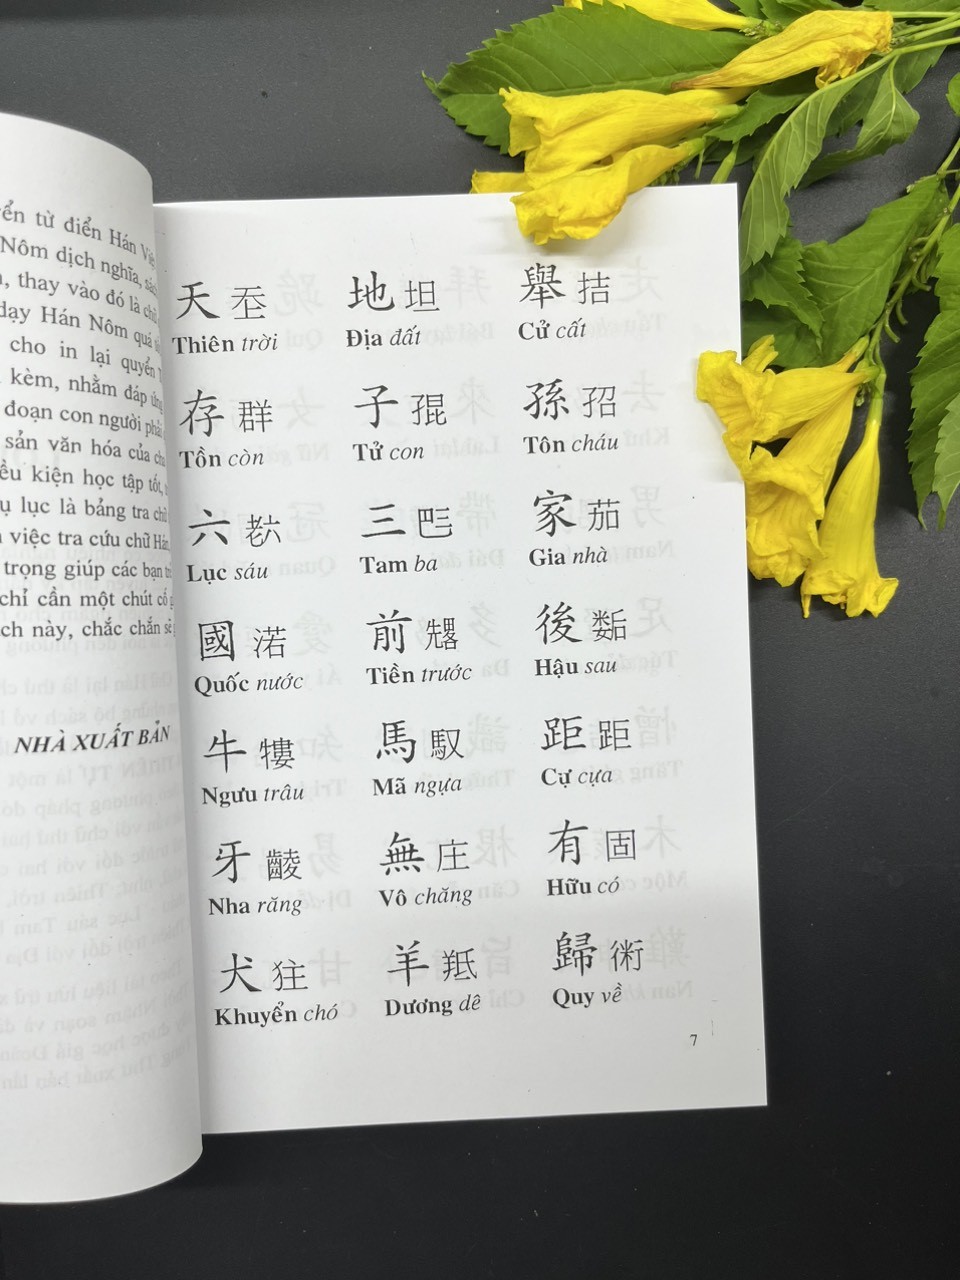 ển từ điển Hán Việ
Nôm dịch nghĩa, sác
thay vào đó là chữ
dạy Hán Nôm quá
cho in lại quyển
kèm, nhằm đáp ứng
đoạn con người phải
sản văn hóa của
kiện học tập tốt,
lục là bảng tra chữ
việc tra cứu chữ Hán,
trọng giúp các bạn
chỉ cần một chút cố
này, chắc chắn sẽ
NHÀ XUẤT BẢN
天 地 坦 舉 拮
Thiên trời Địa đất Cử cất
存 群 子 𡥵 孫 𡥙
Tồn còn Tử con Tôn cháu
六 𦒹 三 𠀧 家 茄
Lục sáu Tam ba Gia nhà
國 渃 前 𠓀 後
Quốc nước Tiền trước Hậu sau
牛 𤛠 馬 馭 距 距
Ngưu trâu Mã ngựa Cự cựa
牙 𪘵 無 庄 有 固
Nha răng Vô chăng Hữu có
犬 㹥 羊 羝 歸 術
Khuyển chó Dương dê Quy về
7